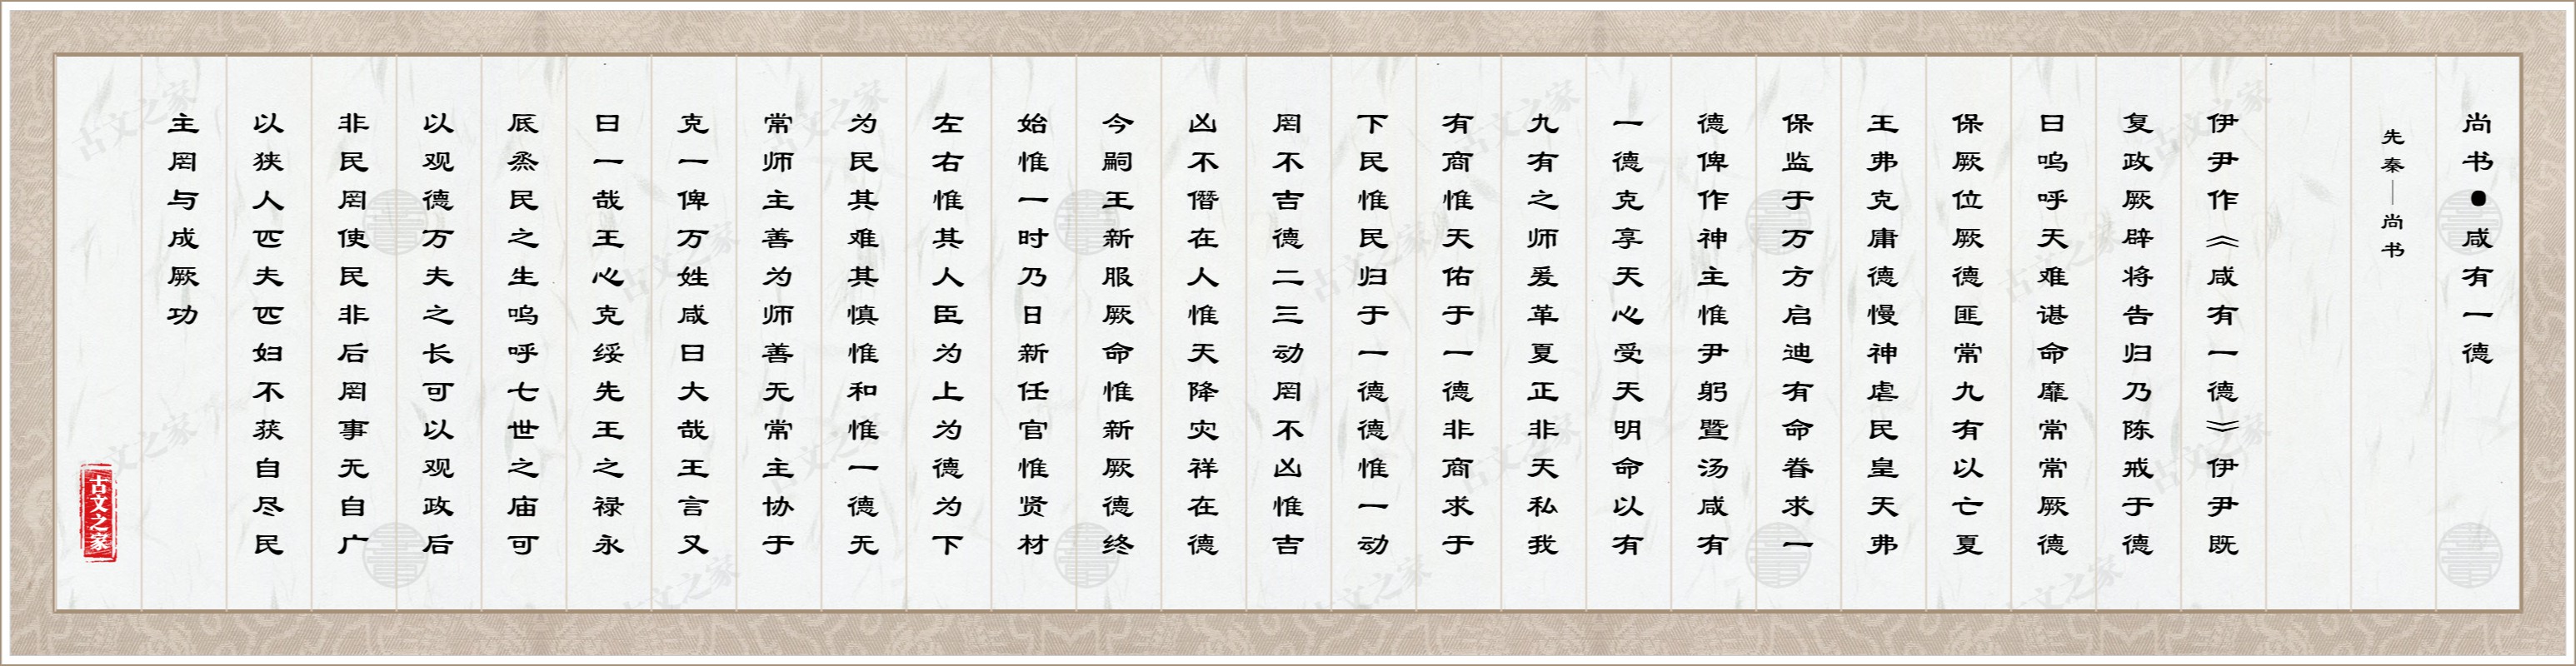 尚书●咸有一德
先秦—尚书
伊尹作《咸有一德》伊尹既
复政厥辟将告归乃陈戒于德
曰呜呼天难谌命靡常常厥德
保厥位厥德匪常九有以亡夏
王弗克庸德慢神虐民皇天弗
保监于万方启迪有命眷求一
德俾作神主惟尹躬暨汤咸有
一德克享天心受天明命以有
九有之师爰革夏正非天私我
有商惟天佑于一德非商求于
下民惟民归于一德德惟一动
罔不吉德二三动罔不凶惟吉
凶不僭在人惟天降灾祥在德
今嗣王新服厥命惟新厥德终
始惟一时乃日新任官惟贤材
左右惟其人臣为上为德为下
为民其难其慎惟和惟一德无
常师主善为师善无常主协于
克一俾万姓咸曰大哉王言又
曰一哉王心克绥先王之禄永
厎烝民之生呜呼七世之庙可
以观德万夫之长可以观政后
非民罔使民非后罔事无自广
以狭人匹夫匹妇不获自尽民
主罔与成厥功
古文之家